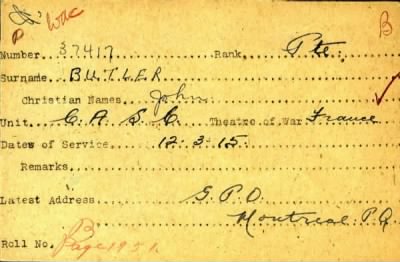 P WAC B
Number 37417 Rank Pte.
Surname BUTLER
Christian Names John
Unit C.A.S.C. Theatre of War France
Dates of Service 12.3.15
Remarks
Latest Address G.P.O.
Montreal P.Q.
Roll No. B Page 1951.